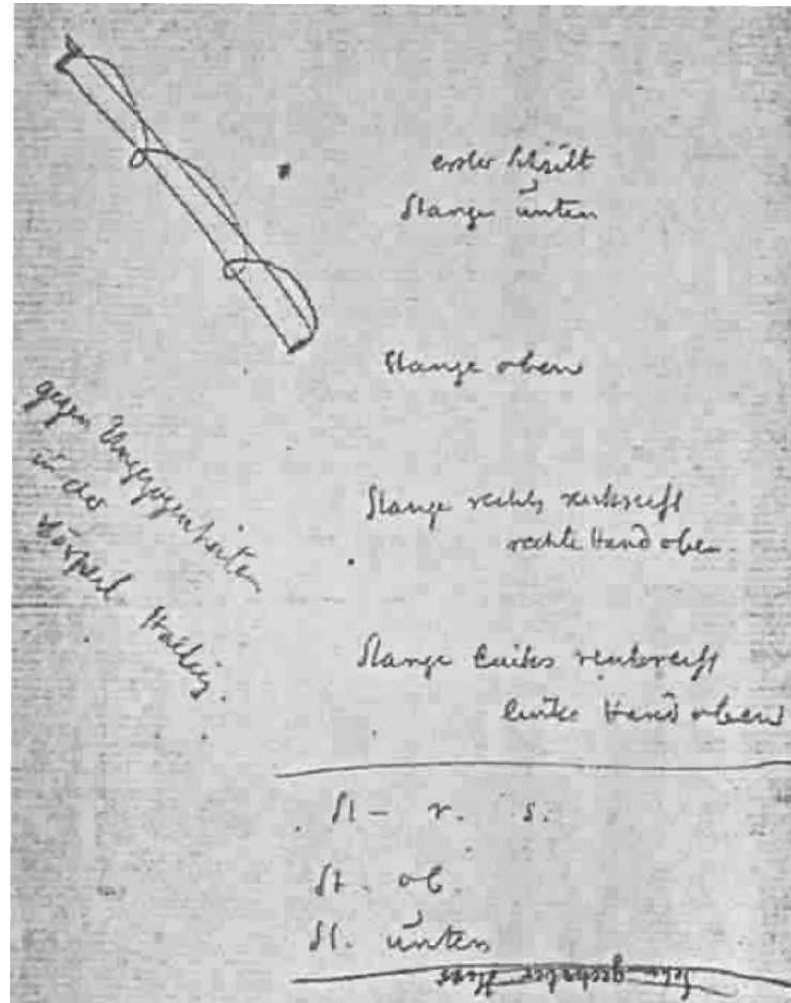 erster Schritt
Stange unten
Stange oben
Stange rechts senkrecht
rechte Hand oben
Stange links senkrecht
linke Hand oben
gegen Ungezogenheiten
in der
körperl. Haltung.
St – r. s.
St. ob.
St. unten
Sehr geehrter Herr